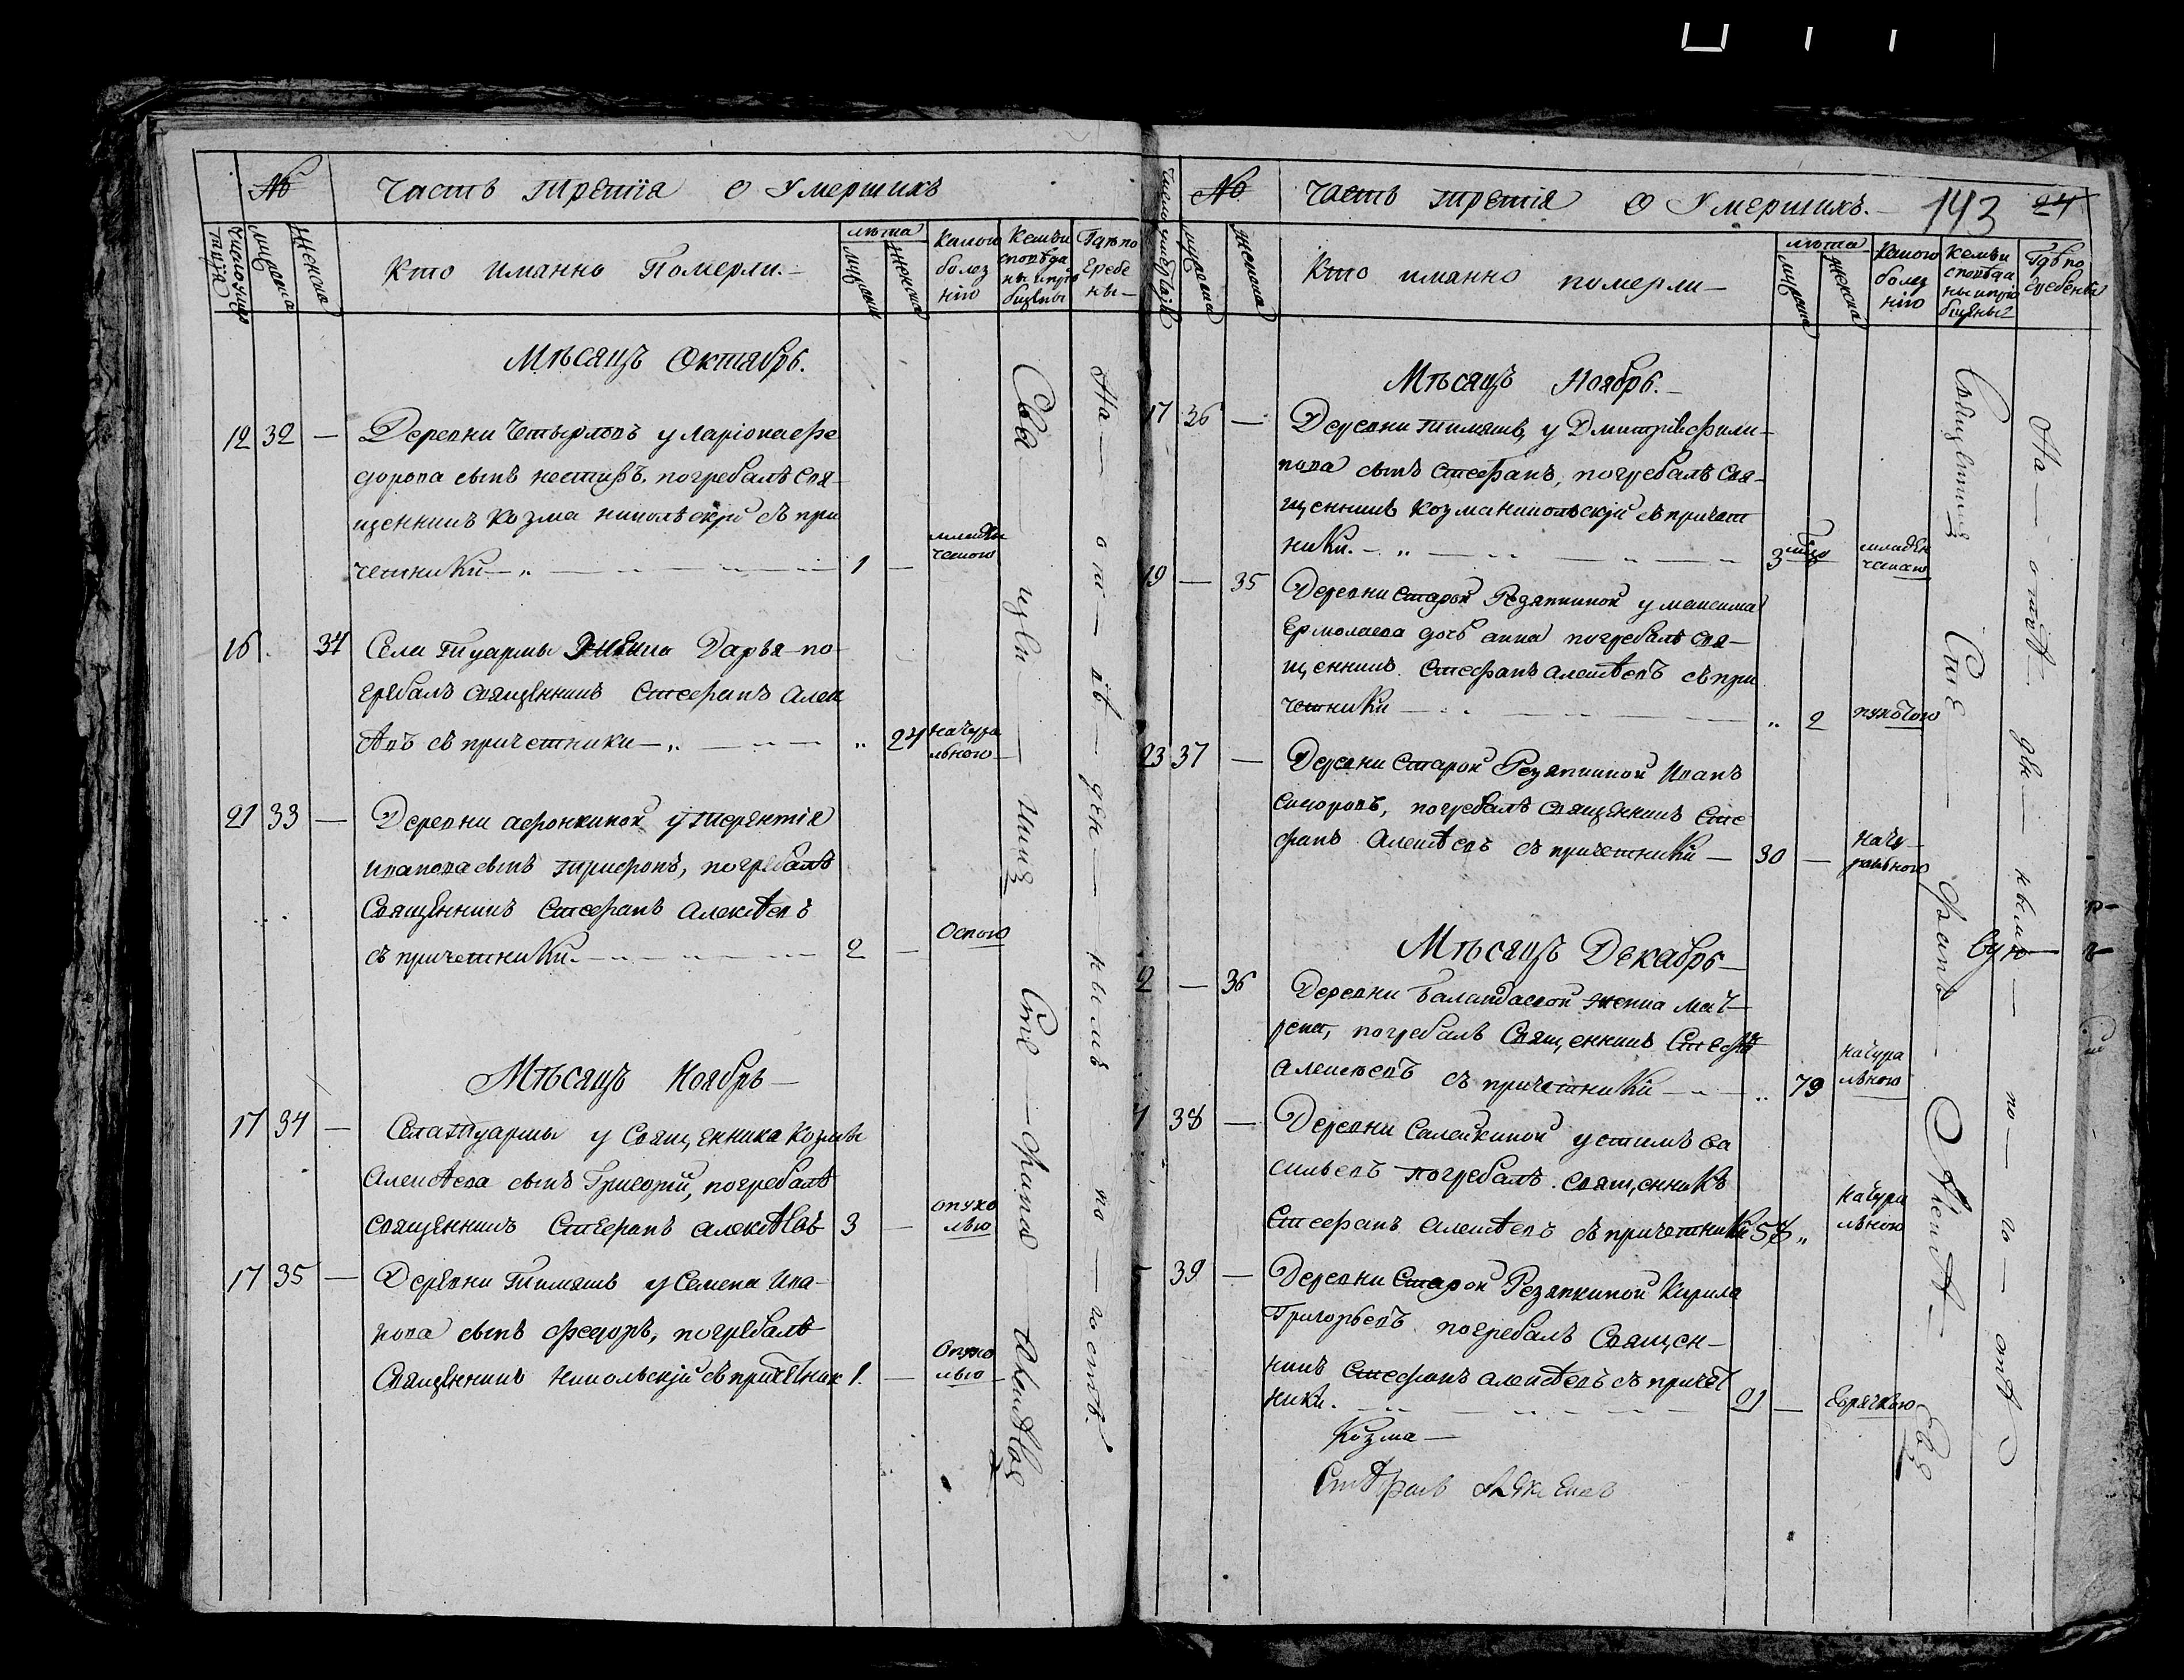 № Часть третїа о умершихъ
Число умер
мужеска
женска
Кто иманно Померли.-
лѣта
мужеска
женска
Какою болез нїю
Кемъ и споѣда ны и прїо бщены
Гдѣ по гребе ны-
Мѣсяцъ Октябрь.
12 32 — Деревни Четырловъ у Ларіона Фе
дорова сынъ нестиръ, погребалъ свя
щенникъ Козма никольскїи съ при
четники — 1 — младен ческою
16 . 34 Села Туармы Дарья по
гребалъ священникъ Стефанъ Алек
ѣевъ съ причетники — „ 24 натура льною
21 33 — Деревни афонкиной у терентїя
иванова сынъ трифонъ, погребалъ
Священникъ Стефанъ Алексѣевъ
съ причетники. 2 — Оспою
Мѣсяцъ Ноябрь —
17 34 — Села Туармы у Священника Козмы
Алексѣева сынъ Григорїи, погребалъ
священникъ Стефанъ алексѣевъ 3 — опухо лью
17 35 — Деревни Тимяшъ у Семена Ива-
нова сынъ федоръ, погребалъ
Священникъ никольскїи съ причетник 1. — Опухо лью
Свя щенникъ Сте фанъ Алексѣевъ
На — о т — въ — ден — н ы мъ по — го стѣ.
№ Часть третїя О Умершихъ. - 143 24
Число умершаго
мужеска
женска
Кто иманно померли —
лѣта
мужеска
женска
Какою болез нїю
Кемъ и споѣда ны и прїо бщены
Гдѣ по гребены
Мѣсяцъ Ноябрь. -
17 36 — Деревни тимяшъ, у Дмитрїя Фили-
пова сынъ Стефанъ, погребалъ свя-
щенникъ Козма никольскїи съ причет
ники. - „ 3 мца младен ческою
19 — 35 Деревни Старой Резяпкиной у максима
Ермолаева дочь анна погребалъ свя-
щенникъ Стефанъ Алексѣевъ съ при
четники „ 2
23 37 — Деревни Старой Резяпкиной Иванъ
Сидоровъ, погребалъ священникъ Сте
фанъ Алексѣевъ съ причетники — 30 — нату- ральною
Мѣсяцъ Декабрь —
2 — 36 Деревни Баландаевой жена Мат-
рена, погребалъ Священникъ Стефанъ
Алексѣевъ съ причетники „ 79 натура льною
4 38 — Деревни Салейкиной устимъ ва
сильевъ погребалъ священникъ
Стефанъ Алексѣевъ съ причетники 58 „ натура льною
39 — Деревни Старой Резяпкиной Кирила
Григорьевъ погребалъ Священ-
никъ Стефанъ Алексѣевъ съ причет
ники. 91 — Горячкою
Козма —
Стефанъ Алексѣевъ
Священникъ Сте — фанъ — Алексѣ — евъ